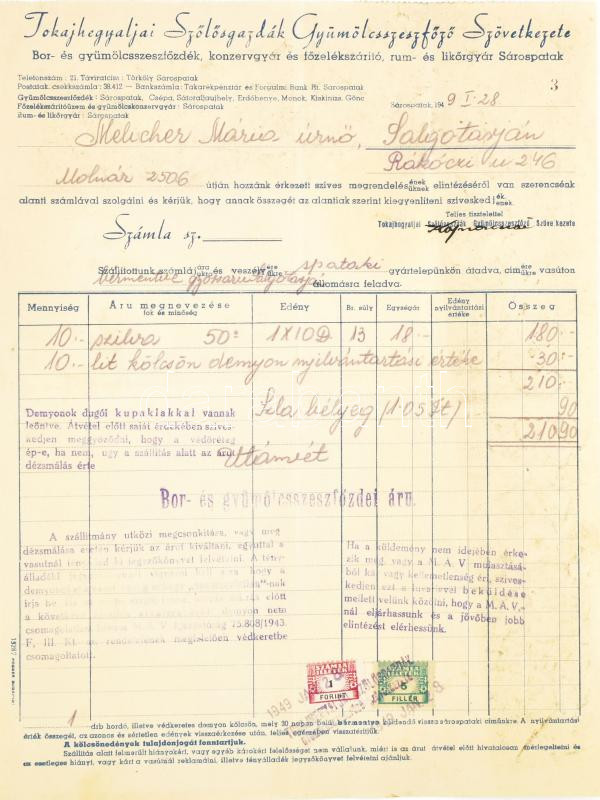 Tokajhegyaljai Szőlősgazdák Gyümölcsszeszfőző Szövetkezete
Bor- és gyümölcsszeszfőzdék, konzervgyár és főzelékszárító, rum- és likőrgyár Sárospatak
Telefonszám: 21. Táviratcim: Törköly Sárospatak
Postatak. csekkszámla: 38.412 — Bankszámla: Takarékpénztár és Forgalmi Bank Rt. Sárospatak
3
Gyümölcsszeszfőzdék: Sárospatak, Csépa, Sátoraljaujhely, Erdőbenye, Monok, Kiskinizs, Gönc
Főzelékszáritóüzem és gyümölcskonzervgyár: Sárospatak
Rum- és likőrgyár: Sárospatak
Sárospatak, 1949 I-28.
Melicher Mária úrnő, Salgótarján
Rákóczi u 246
Molnár 2506 útján hozzánk érkezett szíves megrendelésének
éknek elintézéséről van szerencsénk
alanti számlával szolgálni és kérjük, hogy annak összegét az alantiak szerint kiegyenlíteni szívesked
Teljes tisztelettel
Tokajhegyaljai Szőlősgazdák Gyümölcsszeszfőző Szövetkezete
Számla sz.
Szállítottunk számlájára
ukra és veszélyére
ükre spataki gyártelepünkön átadva, címére
ükre vasúton
állomásra feladva.
Mennyiség Áru megnevezése Edény Br. súly Egységár Edény Összeg
fok és minőség nyilvántartási
értéke
10.- szilva 50° 1X10 D 13 18.- 180.-
10.- lit kölcsön demyon nyilvántartási értéke 30.-
210.-
Szla bélyeg (1.05 Ft) 90
21090
Utánvét
Demyonok dugói kupakjakkal vannak
leöntve. Átvétel előtt saját érdekében szíves-
kedjen meggyőződni, hogy a védőréteg
ép-e, ha nem, ugy a szállítás alatt az árut
dézsmálás érte
Bor- és gyümölcsszeszfőzdei áru.
A szállítmány utközi megcsonkítása, vagy meg
dézsmálása esetén kérjük az árut kiváltani, egyuttal a
Ha a küldemény nem idejében érke-
zik meg, vagy a M. A. V mulasztásá-
ból ká vagy kellemetlenség éri, szíves-
kedjen ezt a fuvarlevél beküldése
mellett velünk közölni, hogy a M. A. V.-
nál eljárhassunk és a jövőben jobb
elintézést elérhessünk.
75.808/1943.
SZÁMLA
ILLETÉK
1
FORINT
SZÁMLA
ILLETÉK
5
FILLÉR
1949 JAN
1 drb hordó, illetve védkeretes demyon kölcsön, mely 30 napon belül bérmentve küldendő vissza sárospataki címünkre. A nyilvántartási
érték összegét, ez azonos és sértetlen edények visszaérkezése után, teljes egészében visszatérítjük.
A kölcsönedények tulajdonjogát fenntartjuk.
Szállítás alatt felmerült hiányokért, vagy egyéb károkért felelősséget nem vállalunk, miért is az árut átvétel előtt hivatalosan mérlegeltetni és
az esetleges hiányt, vagy kárt a vasútnál reklamálni, illetve tényálladék jegyzőkönyvet felvétetni ajánljuk.